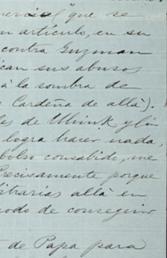 que se
un artículo, en su
contra Guzman
can sus abusos
á la sombra de
Cardeña de allá).
es de
logra hacer nada,
bolso consabido, me
Precisamente porque
bitrarias allá en
modo de conseguirlo
de Papa para